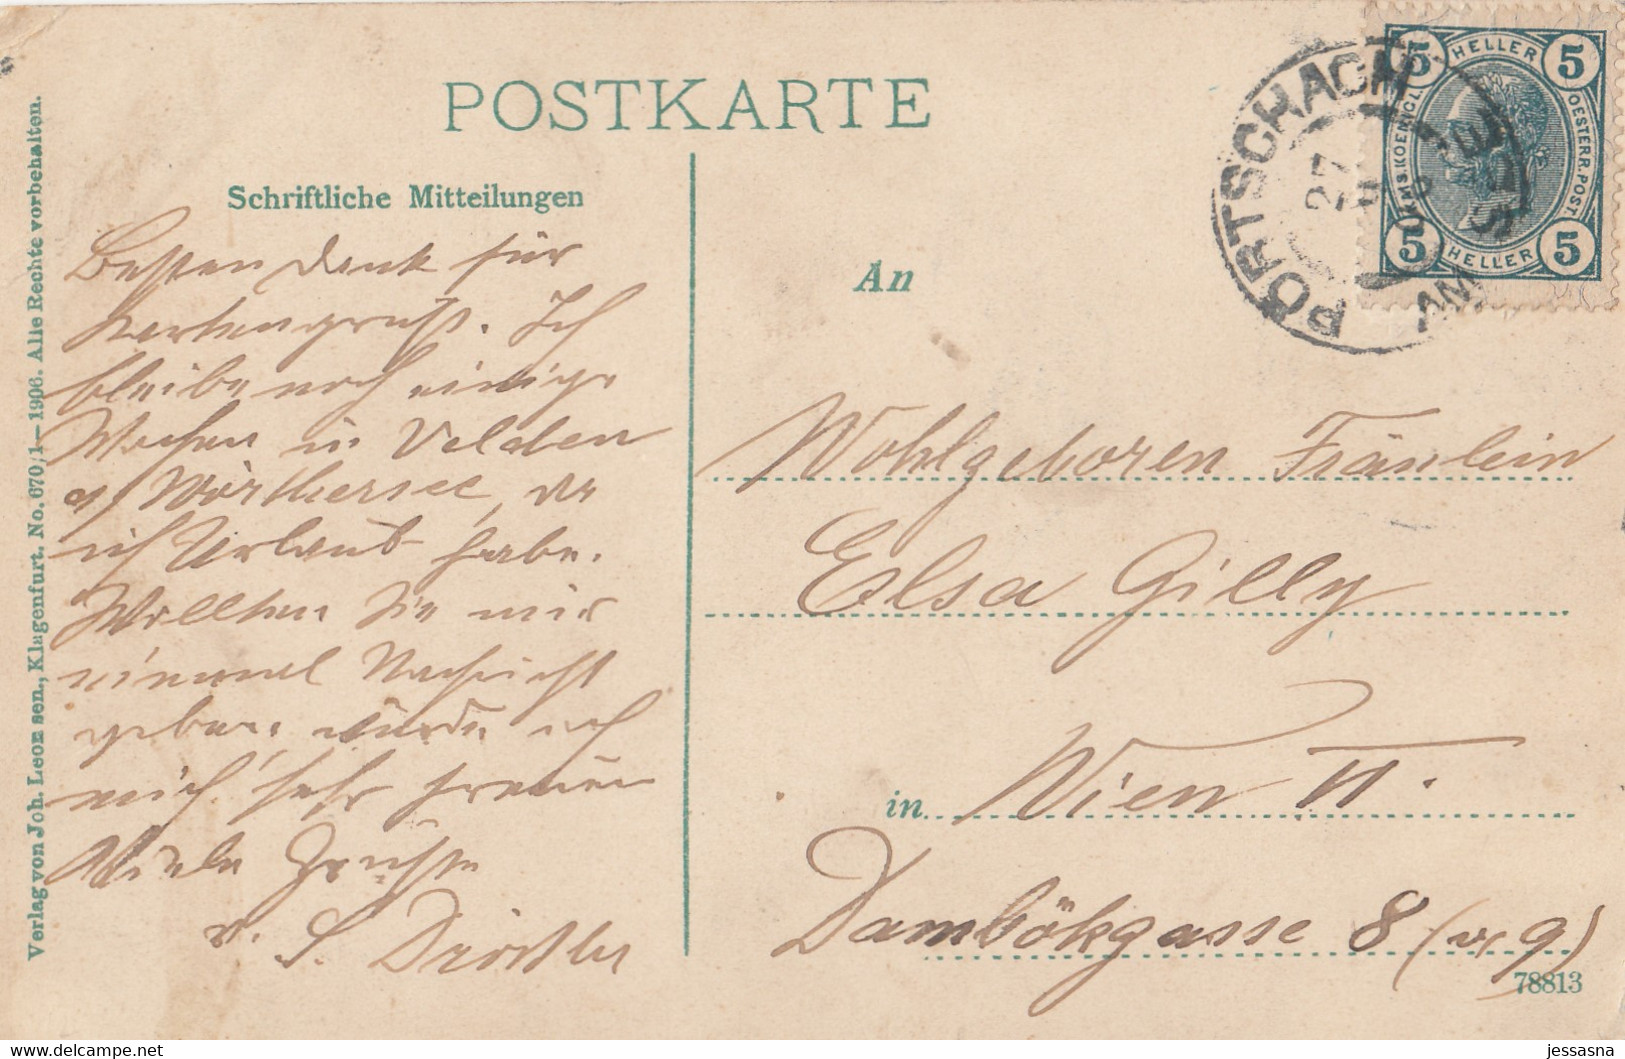 POSTKARTE
Schriftliche Mitteilungen
Besten Dank für
Kartengruß. Ich
bleibe noch einige
Wochen in Velden
a/ Wörthersee, da
ich Urlaub habe.
Wollten Sie mir
einmal Nachricht
geben, würde ich
mich sehr freuen
Viele Grüsse
v. S.
Verlag von Joh. Leon sen., Klagenfurt. No. 670/1—1906. Alle Rechte vorbehalten.
PÖRTSCHACH
AM SEE
27
5 HELLER 5
KAIS. KOENIGL.
OESTERR. POST.
5 HELLER 5
An
Wohlgeboren Fräulein
Elsa Gilly
in Wien VI.
Damböckgasse 8 (od 9)
78813
jessasna